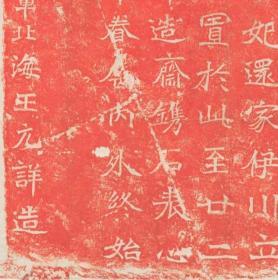 妃還家伊川立
置於此至廿二
造齋鐫石表心
眷屬內外終始
軍北海王元詳造